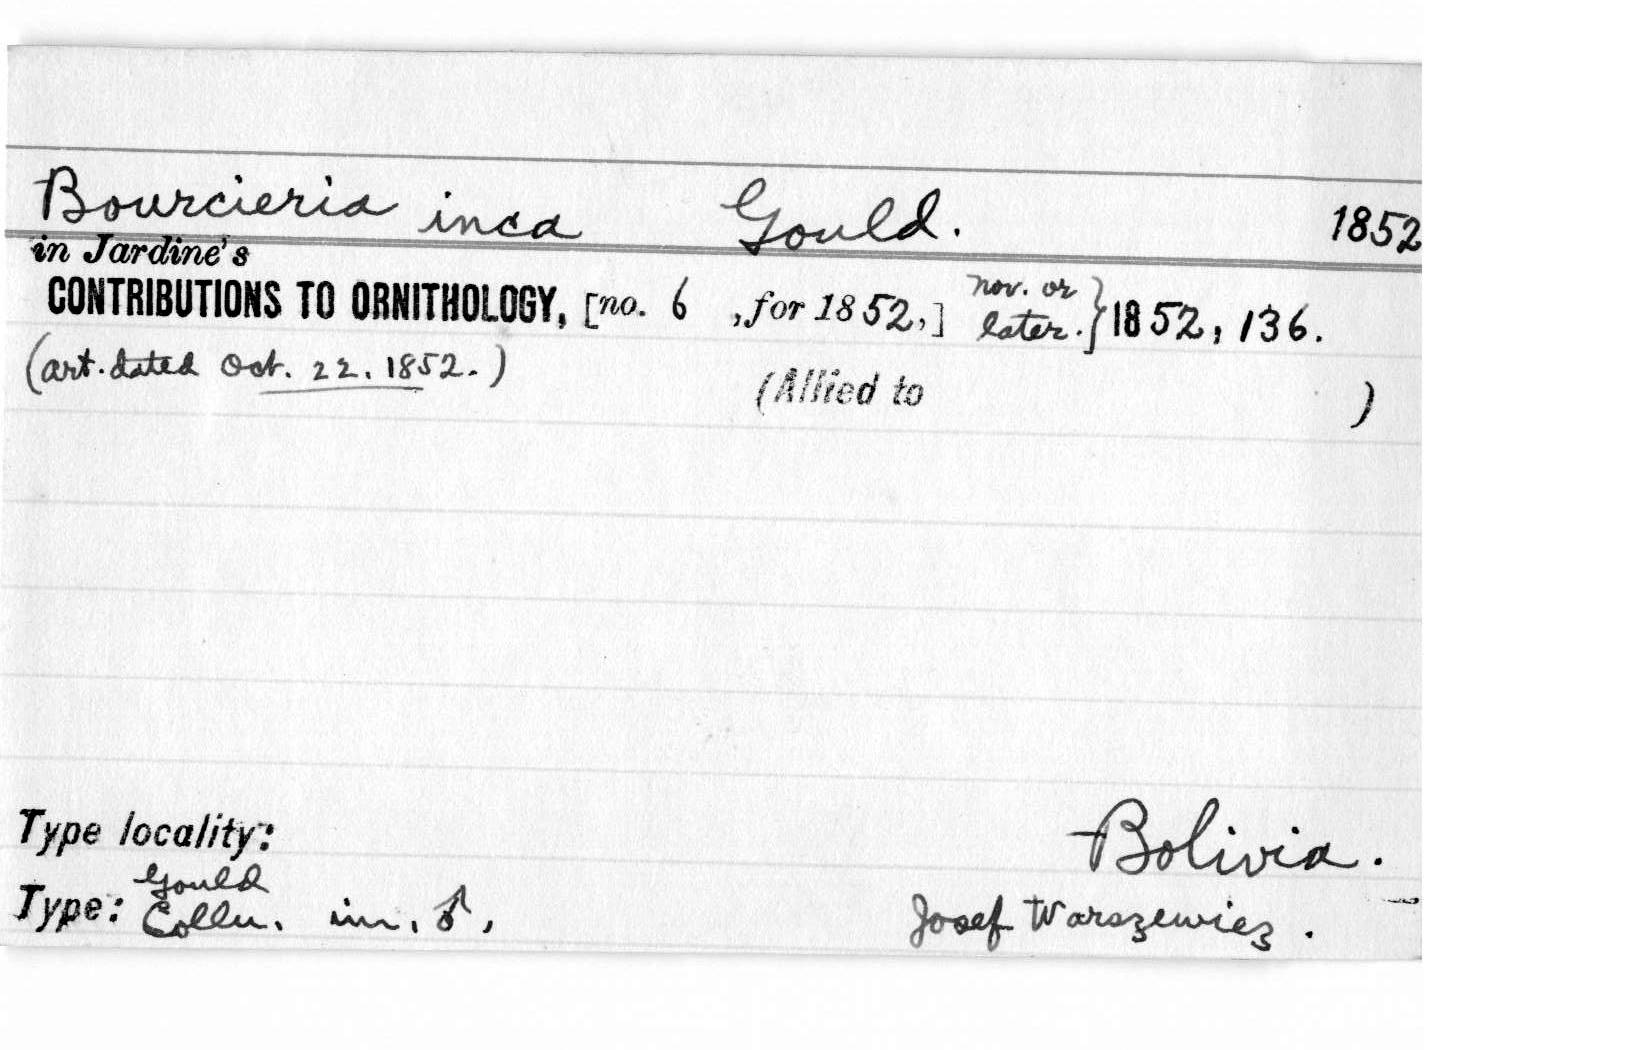 Bourcieria inca Gould. 1852
in Jardine's
CONTRIBUTIONS TO ORNITHOLOGY, [no. 6 , for 1852,] nov. or later.} 1852, 136.
(art. dated Oct. 22. 1852.)
(Allied to )
Type locality: Bolivia.
Type: Gould Colln. im. ♂, Josef Warszewiez.